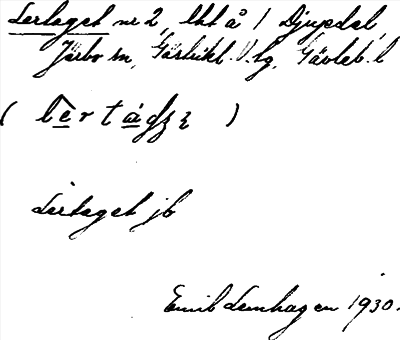 Lertaget nr 2, lht å 1 Djupdal,
Järbo sn, Gästrikl. V. tg, Gävleb. l
( lertádʒɛ )
Lertaget jb
Emil Lemhagen 1930.